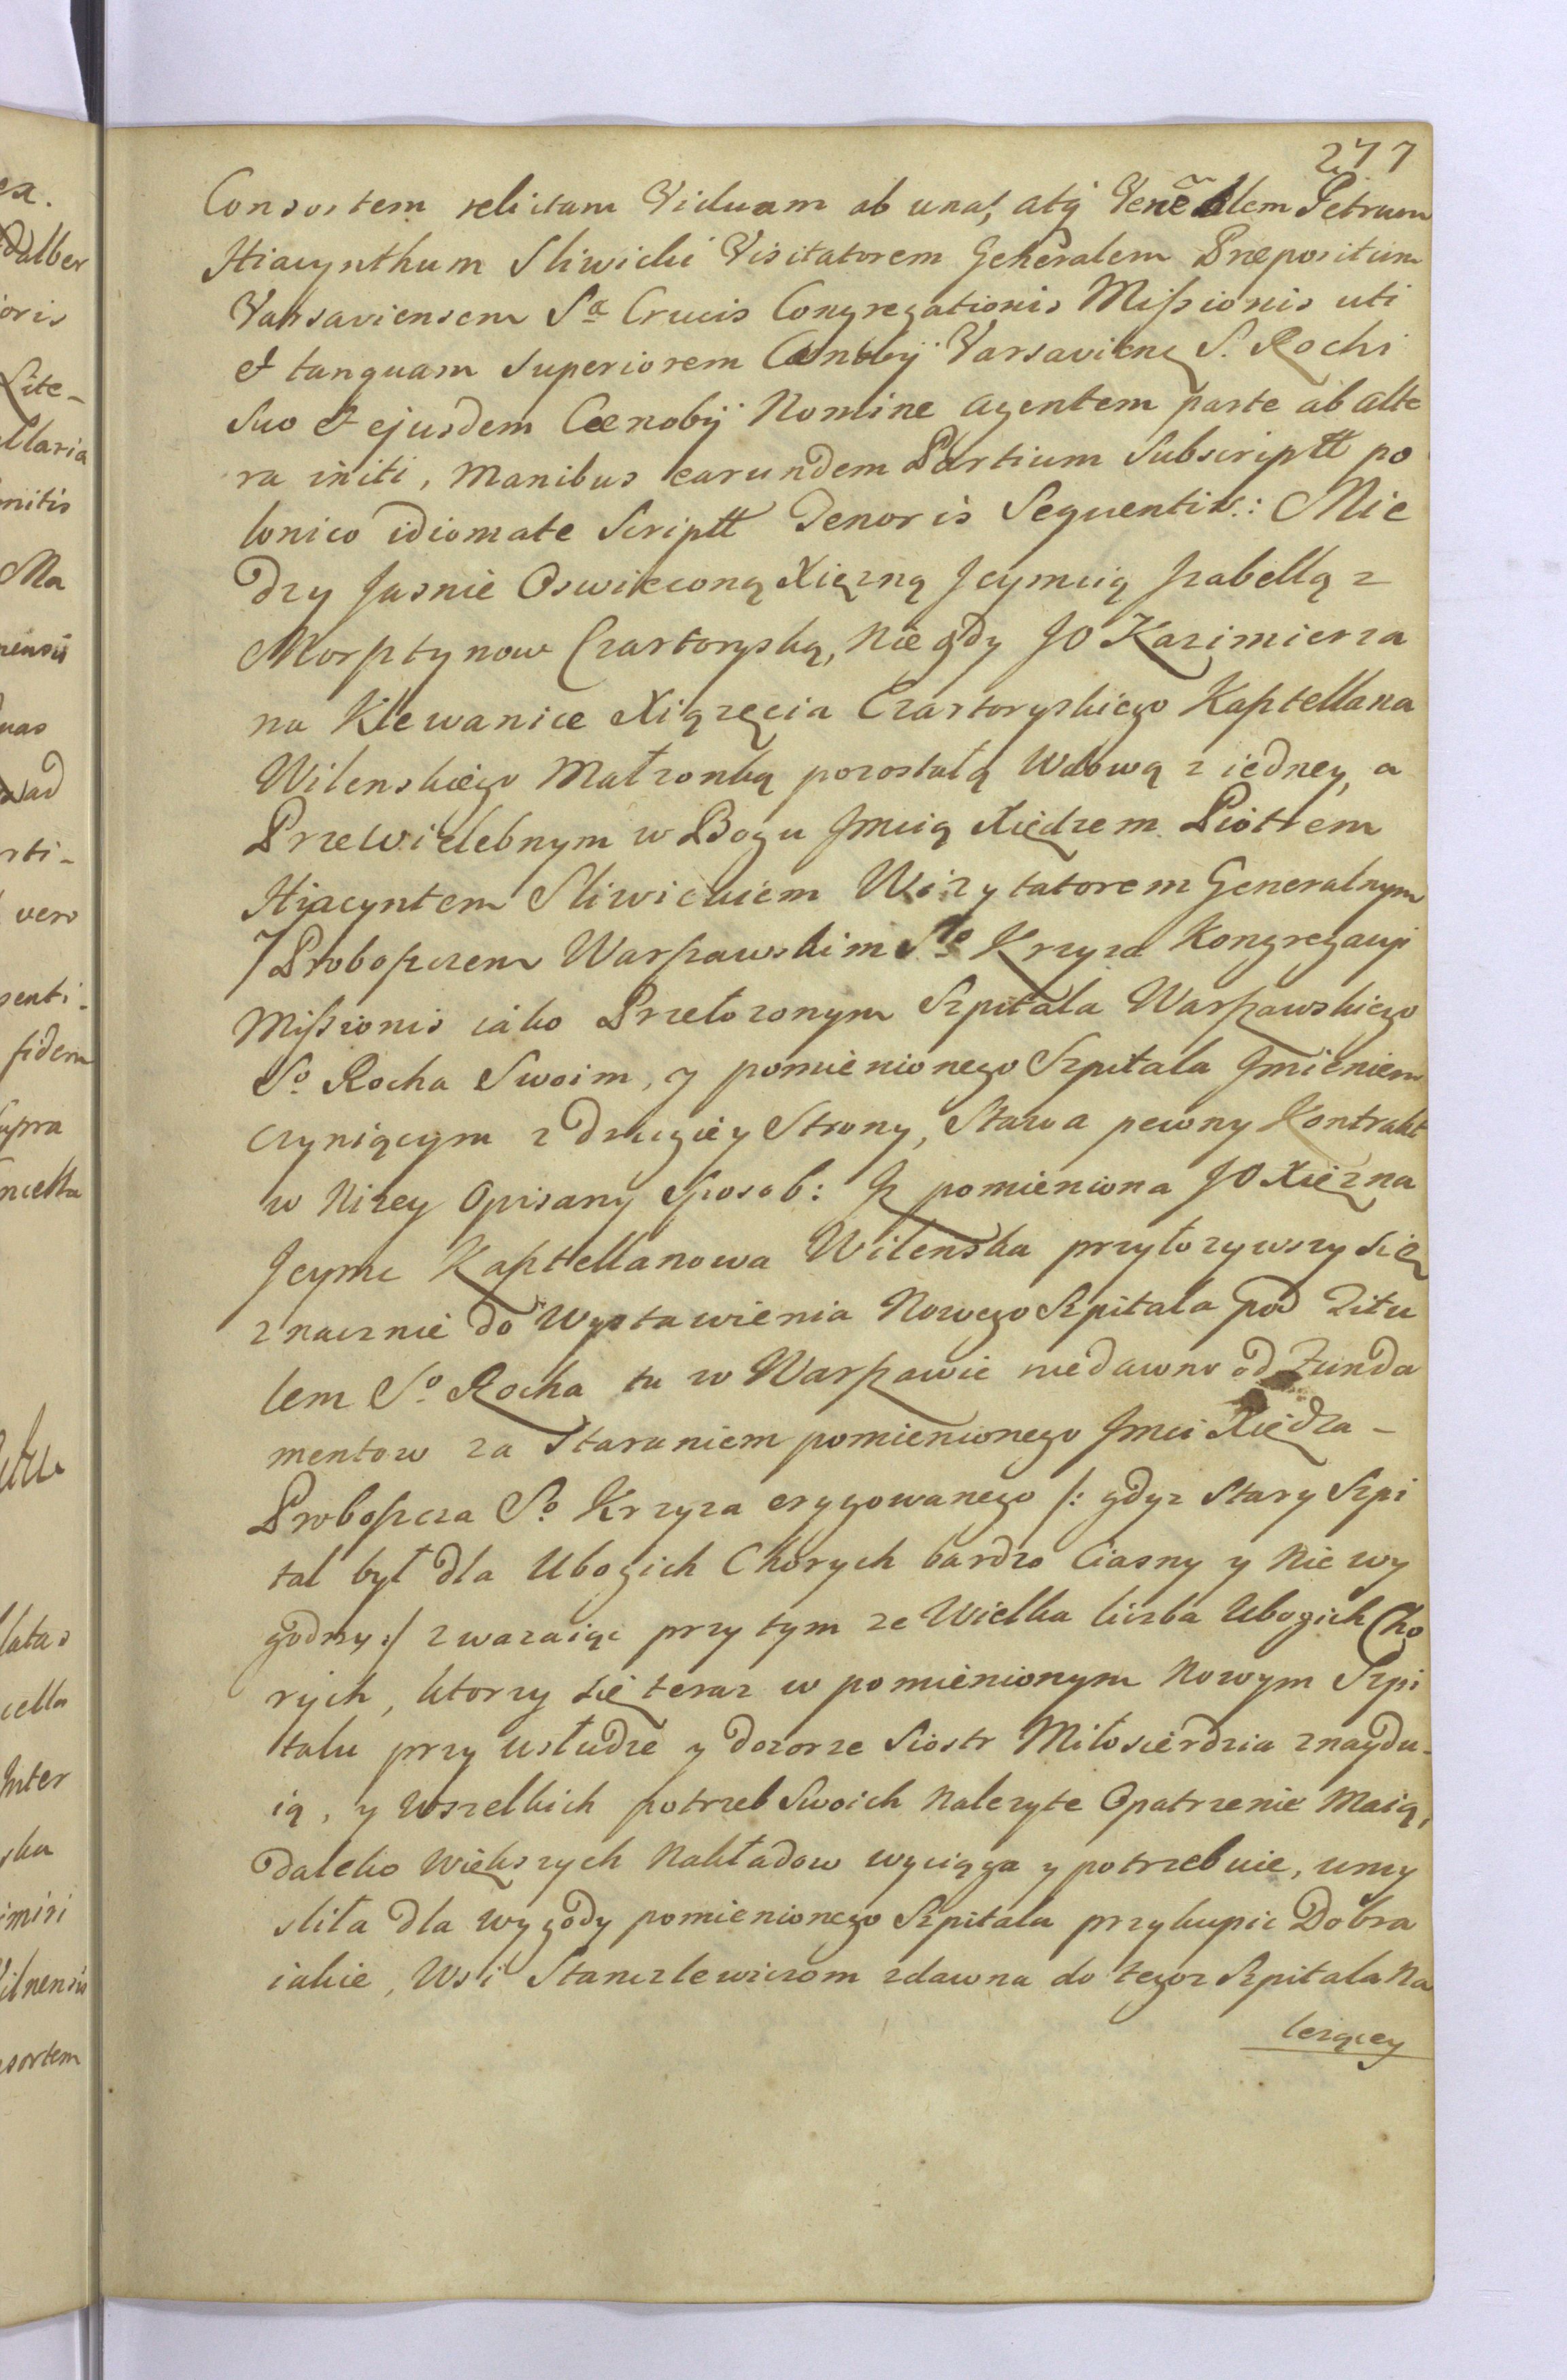 277
Consortem relictam Viduam ab una, atq̄ Venēblem Petrum
Hiacynthum Sliwicki Visitatorem Generalem Præpositum
Varsaviensem Sæ Crucis Congregationis Mißionis uti
et tanquam Superiorem Cænobij Varsavien S. Rochi
Suo et ejusdem Cænobij Nomine agentem parte ab alte
ra initi, Manibus earundem Partium Subscriptt po
lonico idiomate Scriptt Tenoris Sequentis.: Mie
dzy Jasnie Oswieconą Xięzną Jeymcią Jzabellą z
Morsztynow Czartoryską, Niegdy JO Kazimierza
na Klewanice Xiązęcia Czartoryskiego Kasztellana
Wilenskiego Małzonką pozostałą Wdową z iedney, a
Przewielebnym w Bogu Jmcią Xiędzem Piotrem
Hiacyntem Sliwickiem Wizytatorem Generalnym
y Proboszczem Warszawskim Sto Krzyza Kongregacyi
Mißionis iako Przełozonym Szpitala Warszawskiego
So Rocha Swoim, y pomienionego Szpitala Jmieniem
czyniącym z drugiey Strony, Stawa pewny Kontrakt
w Nizey Opisany Sposob: Jz pomieniona JO Xięzna
Jeymc Kasztellanowa Wilenska przyłozywszy się
znacznie do Wystawienia Nowego Szpitala pod Titu
lem So Rocha tu w Warszawie niedawno od Funda
mentow za Staraniem pomienionego Jmci Xiędza -
Proboszcza So Krzyza erygowanego /: gdyz Stary Szpi
tal był dla Ubogich Chorych bardzo Ciasny y Nie wy
godny :/ zwazaiąc przytym ze Wielka liczba Ubogich Cho
rych, ktorzy się teraz w pomienionym Nowym Szpi
talu przy usłudze y dozorze Siostr Miłosierdzia znaydu-
ią, y Wszelkich potrzeb Swoich Nalezyte Opatrzenie Maią,
daleko Większych Nakładow wyciąga y potrzebuie, umy
sliła dla wygody pomienionego Szpitala przykupic Dobra
iakie, Wsi Stanczlewiczom zdawna do tegoz Szpitala Na
lezącey